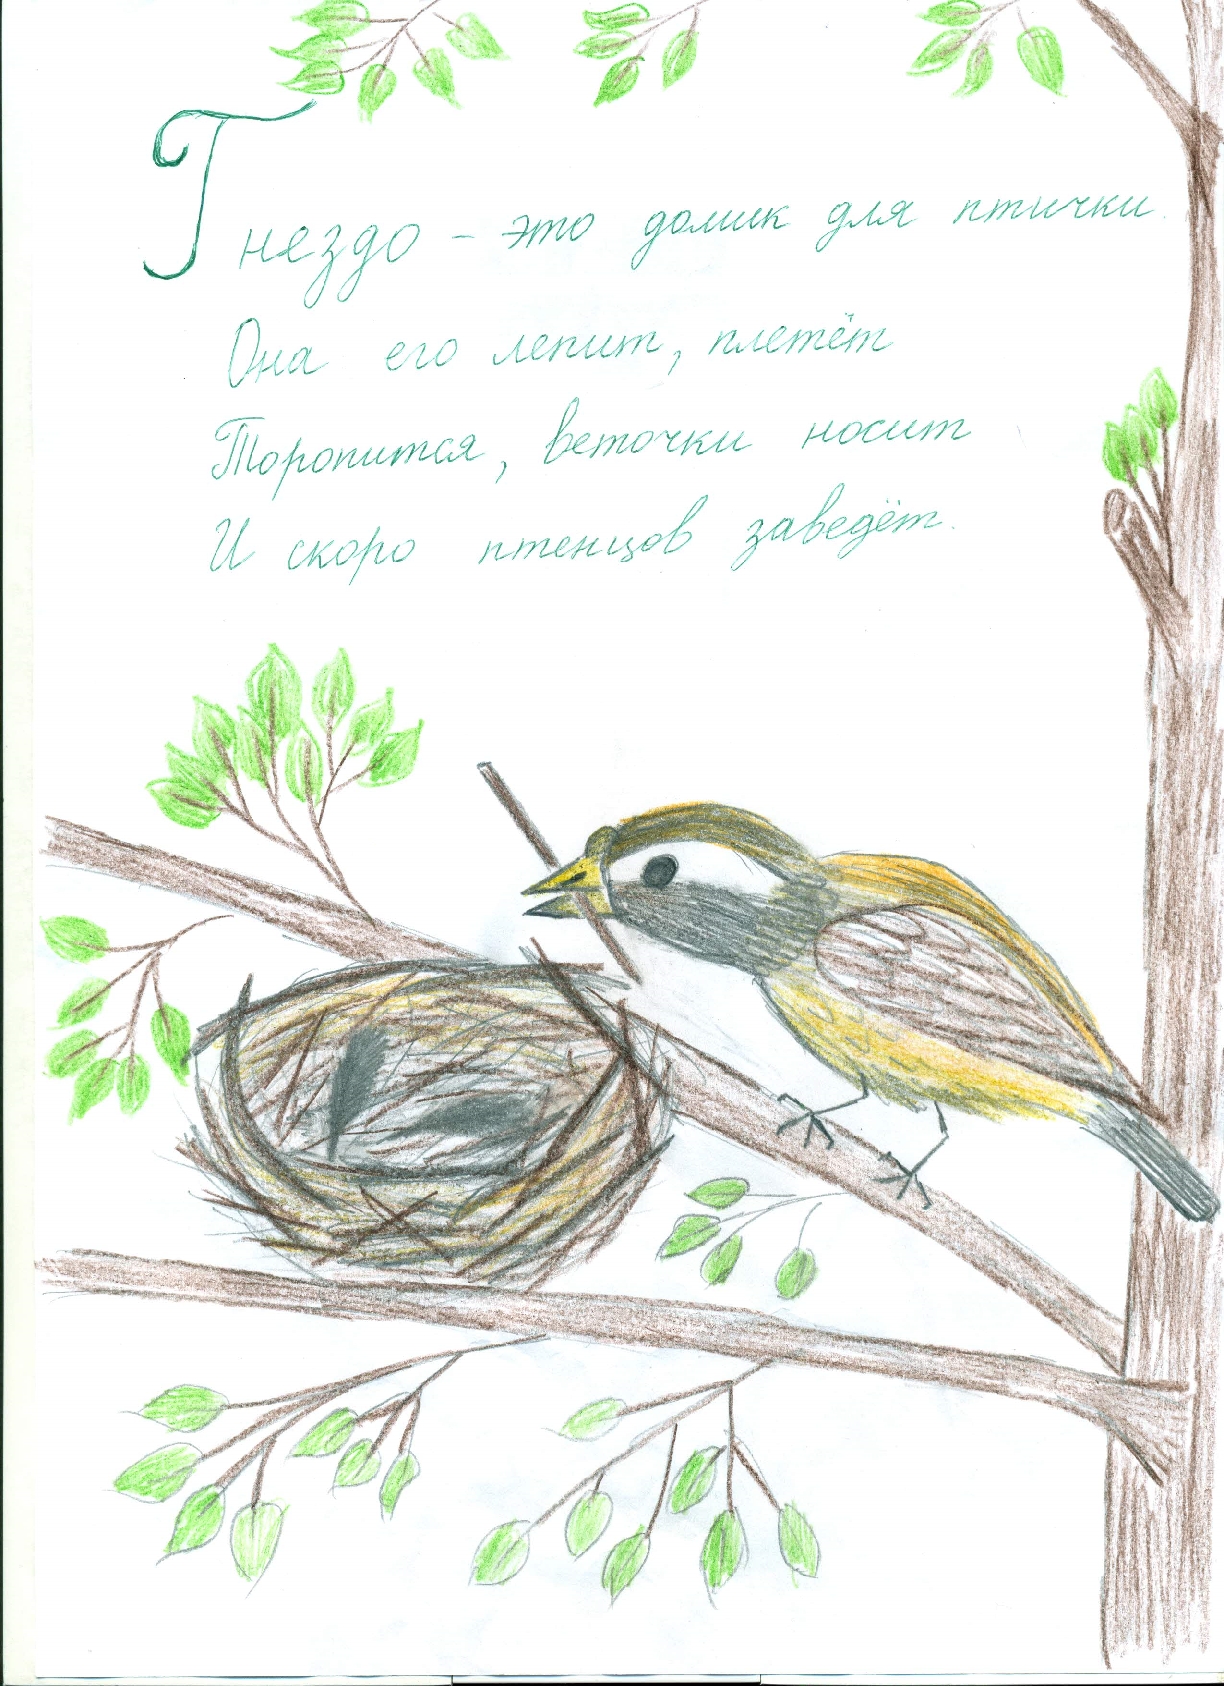 Гнездо - это домик для птички.
Она его лепит, плетёт
Торопится, веточки носит
И скоро птенцов заведёт.